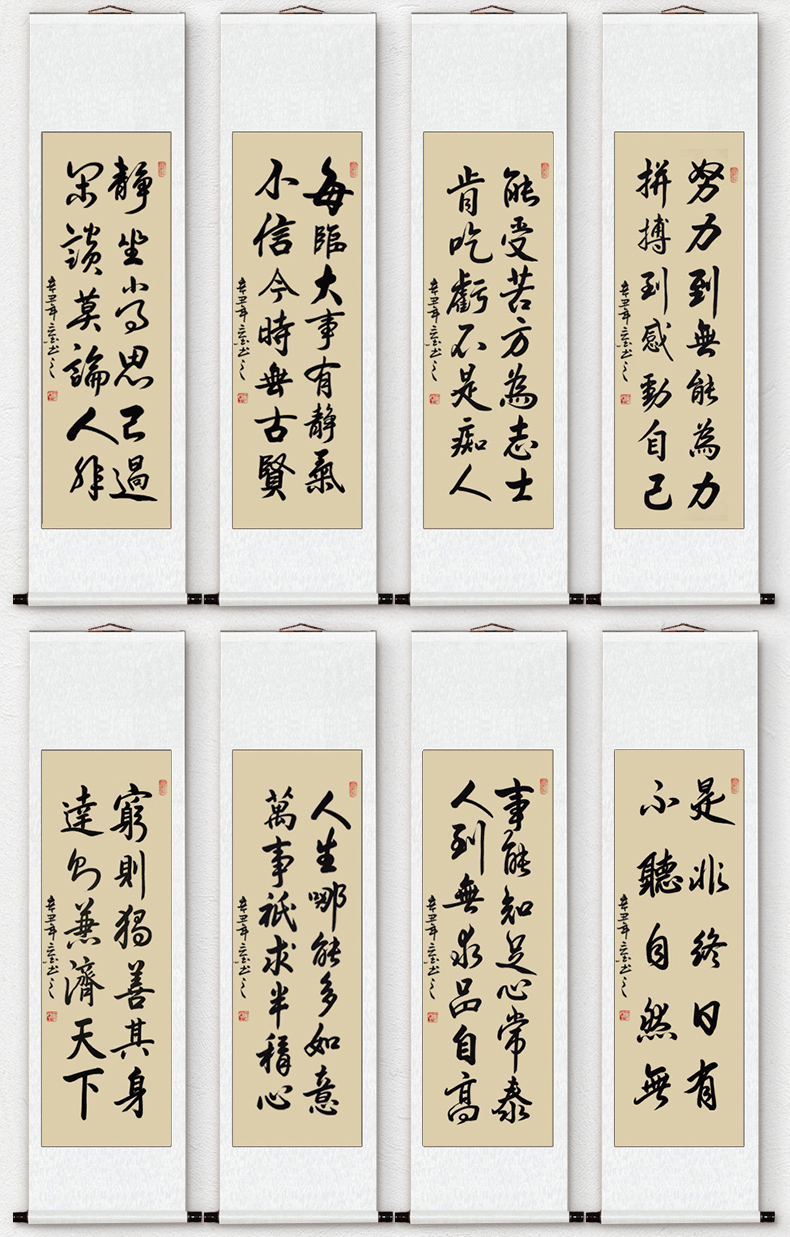 靜坐常思己過
閑談莫論人非
辛丑年
每臨大事有靜氣
不信今時無古賢
辛丑年
能受苦方為志士
肯吃虧不是痴人
辛丑年
努力到無能為力
拼搏到感動自己
辛丑年
窮則獨善其身
達則兼濟天下
辛丑年
人生哪能多如意
萬事祇求半稱心
辛丑年
事能知足心常泰
人到無求品自高
辛丑年
是非終日有
不聽自然無
辛丑年